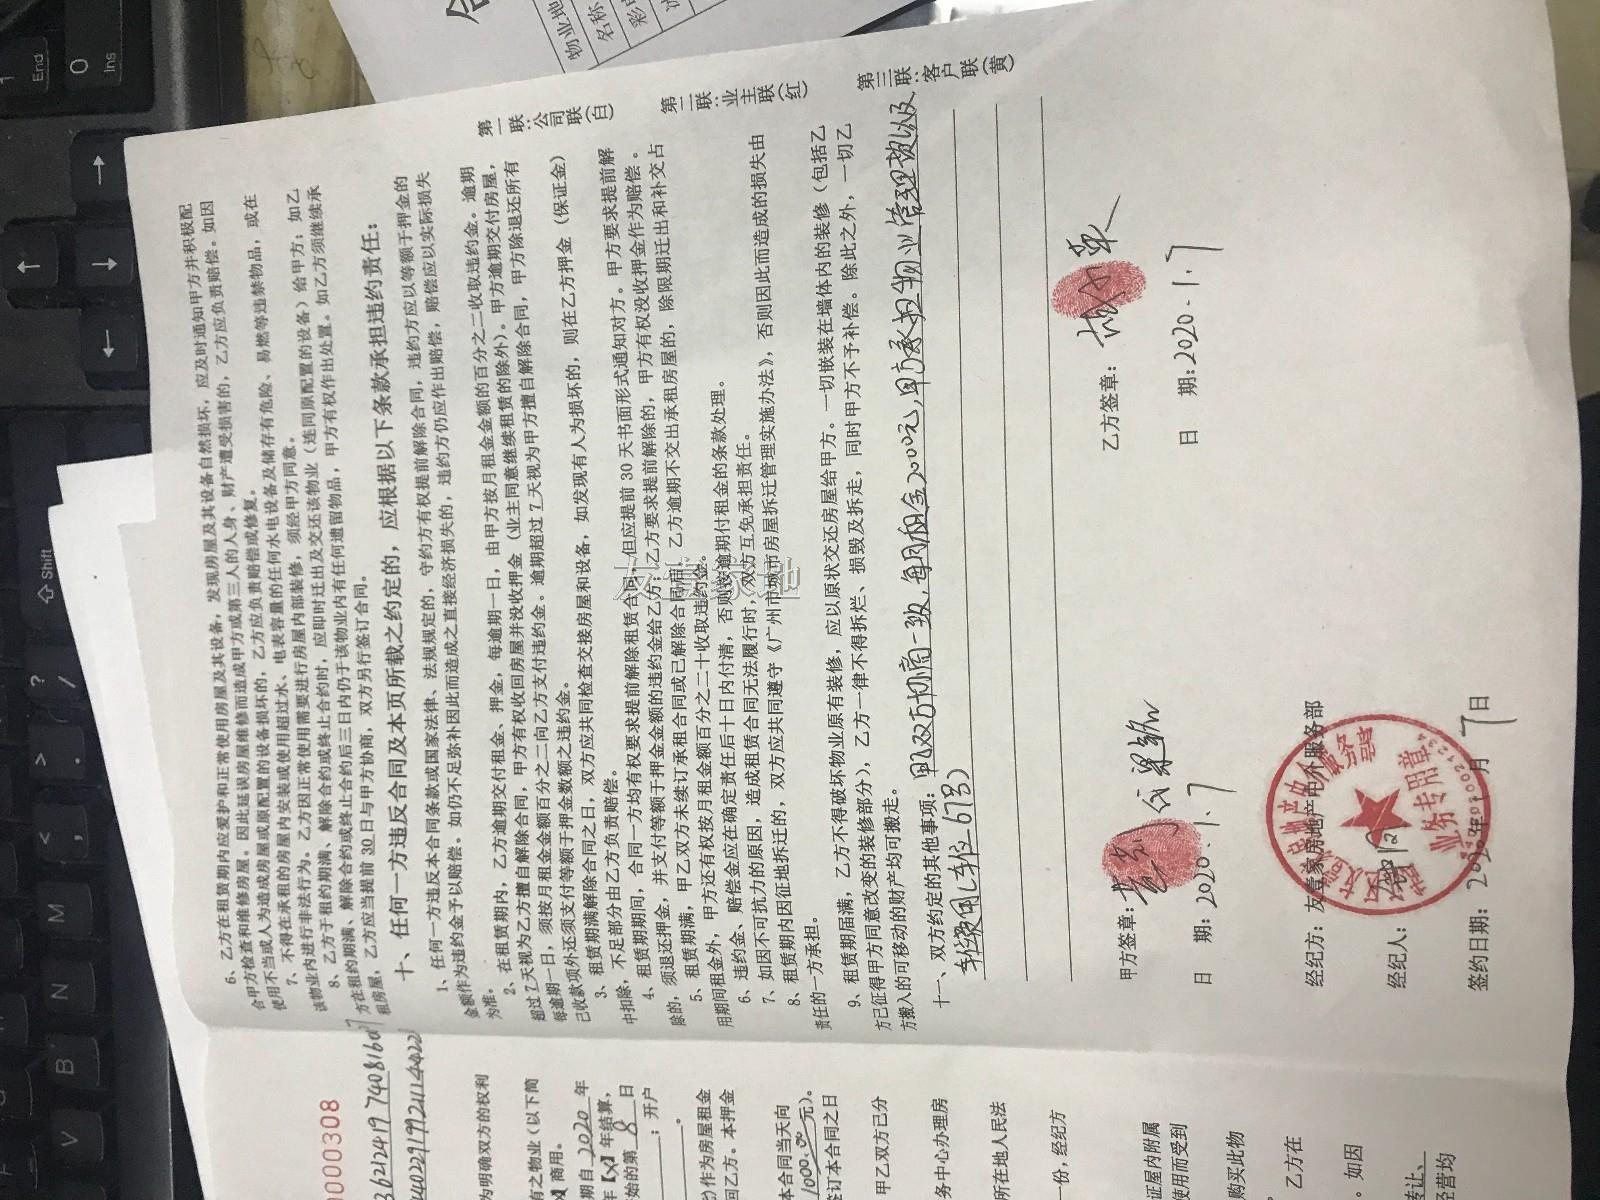 6、乙方在租赁期内应爱护和正常使用房屋及其设备，发现房屋及其设备自然损坏，应及时通知甲方并积极配
合甲方检查和维修房屋。因此延误房屋维修而造成甲方或第三人的人身、财产遭受损害的，乙方应负责赔偿。如因
使用不当或人为造成房屋或原配置的设备损坏的，乙方应负责赔偿或修复。
7、不得在承租的房屋内安装或使用超过水、电表容量的任何水电设备及储存有危险、易燃等违禁物品，或在
该物业内进行非法行为。乙方因正常使用需要进行房屋内部装修，须经甲方同意。
8、乙方于租约期满、解除合约或终止合约时，应即时迁出及交还该物业（连同原配置的设备）给甲方；如乙
方在租约期满、解除合约或终止合约后三日内仍于该物业内有任何遗留物品，甲方有权作出处置。如乙方须继续承
租房屋，乙方应当提前 30 日与甲方协商，双方另行签订合同。
十、任何一方违反合同及本页所载之约定的，应根据以下条款承担违约责任：
1、任何一方违反本合同条款或国家法律、法规规定的，守约方有权提前解除合同，违约方应以等额于押金的
金额作为违约金予以赔偿。如仍不足弥补因此而造成之直接经济损失的，违约方仍应作出赔偿，赔偿应以实际损失
为准。
2、在租赁期内，乙方逾期交付租金、押金，每逾期一日，由甲方按月租金金额的百分之二收取违约金。逾期
超过 7 天视为乙方擅自解除合同，甲方有权收回房屋并没收押金（业主同意继续租赁的除外）。甲方逾期交付房屋，
每逾期一日，须按月租金金额百分之二向乙方支付违约金。逾期超过 7 天视为甲方擅自解除合同，甲方除退还所有
已收款项外还须支付等额于押金数额之违约金。
3、租赁期满解除合同之日，双方应共同检查交接房屋和设备，如发现有人为损坏的，则在乙方押金（保证金）
中扣除，不足部分由乙方负责赔偿。
4、租赁期期间，合同一方均有权要求提前解除租赁合同，但应提前 30 天书面形式通知对方。甲方要求提前解
除的，须退还押金，并支付等额于押金金额的违约金给乙方；乙方要求提前解除的，甲方有权没收押金作为赔偿。
5、租赁期满，甲乙双方未续订承租合同或已解除合同后，乙方逾期不交出承租房屋的，除限期迁出和补交占
用期间租金外，甲方还有权按月租金额百分之二十收取违约金。
6、违约金、赔偿金应在确定责任后十日内付清，否则按逾期付租金的条款处理。
7、如因不可抗力的原因，造成租赁合同无法履行时，双方互免承担责任。
8、租赁期内因征地拆迁的，双方应共同遵守《广州市城市房屋拆迁管理实施办法》，否则因此而造成的损失由
责任的一方承担。
9、租赁期届满，乙方不得破坏物业原有装修，应以原状交还房屋给甲方。一切嵌装在墙体内的装修（包括乙
方已征得甲方同意改变的装修部分），乙方一律不得拆烂、损毁及拆走，同时甲方不予补偿。除此之外，一切乙
方搬入的可移动的财产均可搬走。
十一、双方约定的其他事项：甲乙双方协商一致，每月租金2000元，甲方承担物业管理费以及
车位费用（车位67B）
甲方签章：
日 期：2020.1.7
乙方签章：
日 期：2020.1.7
经纪方：友壹家房地产中介服务部
经纪人：
签约日期：2020年1月7日
业务专用章
第一联：公司联（白）
第二联：业主联（红）
第三联：客户联（黄）
0000308
为明确双方的权利
有之物业（以下简
商用。
期自 2020 年
年结算，
始的第 8 日
；开户
作为房屋租金
回乙方。本押金
本合同当天向
1000.00元）。
签订本合同之日
甲乙双方已分
务中心办理房
所在地人民法
一份，经纪方
证屋内附属
使用而受到
购买此物
乙方在
。如因
转让、
经营均
物业地
名称
End
0
Ins
Shift
?
/
>
.
<
,
M
N
B
V